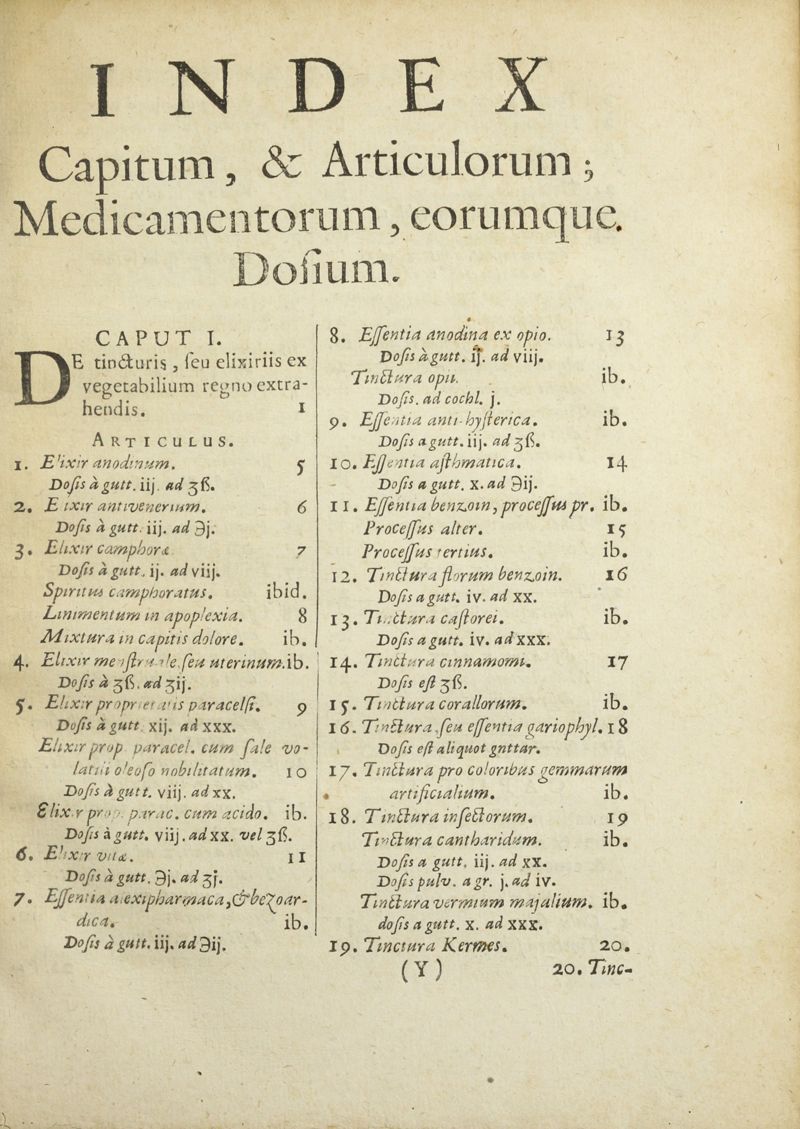 INDEX
Capitum, & Articulorum;
Medicamentorum, eorumque.
Doſium.
CAPUT I.
DE tincturis, ſeu elixiriis ex
vegetabilium regno extra-
hendis. 1
ARTICULUS.
1. Elixir anodinum. 5
Doſis à gutt. iij. ad ʒß.
2. E ixir antivenerium. 6
Doſis à gutt. iij. ad ℈j.
3. Elixir camphoræ 7
Doſis à gutt. ij. ad viij.
Spiritus camphoratus. ibid.
Linimentum in apoplexia. 8
Mixtura in capitis dolore. ib.
4. Elixir menſtruale, ſeu uterinum. ib.
Doſis à ʒß. ad ʒij.
5. Elixir proprietatis paracelſi. 9
Doſis à gutt. xij. ad xxx.
Elixir prop. paracel. cum ſale vo-
latili oleoſo nobilitatum. 10
Doſis à gutt. viij. ad xx.
Elixir prop. parac. cum acido. ib.
Doſis à gutt. viij. ad xx. vel ʒß.
6. Elixir vitæ. 11
Doſis à gutt. ℈j. ad ʒj.
7. Eſſentia alexipharmaca, & bezoar-
dica. ib.
Doſis à gutt. iij. ad ℈ij.
8. Eſſentia anodina ex opio. 13
Doſis à gutt. ij. ad viij.
Tinctura opii. ib.
Doſis. ad cochl. j.
9. Eſſentia anti-hyſterica. ib.
Doſis a gutt. iij. ad ʒß.
10. Eſſentia aſthmatica. 14
Doſis a gutt. x. ad ℈ij.
11. Eſſentia benzoin, proceſſus pr. ib.
Proceſſus alter. 15
Proceſſus tertius. ib.
12. Tinctura florum benzoin. 16
Doſis a gutt. iv. ad xx.
13. Tinctura caſtorei. ib.
Doſis a gutt. iv. ad xxx.
14. Tinctura cinnamomi. 17
Doſis eſt ʒß.
15. Tinctura corallorum. ib.
16. Tinctura, ſeu eſſentia gariophyl. 18
Doſis eſt aliquot gnttar.
17. Tinctura pro coloribus gemmarum
artificialium. ib.
18. Tinctura inſectorum. 19
Tinctura cantharidum. ib.
Doſis a gutt. iij. ad xx.
Doſis pulv. a gr. j. ad iv.
Tinctura vermium majalium. ib.
doſis a gutt. x. ad xxx.
19. Tinctura Kermes. 20.
(Y) 20. Tinc-